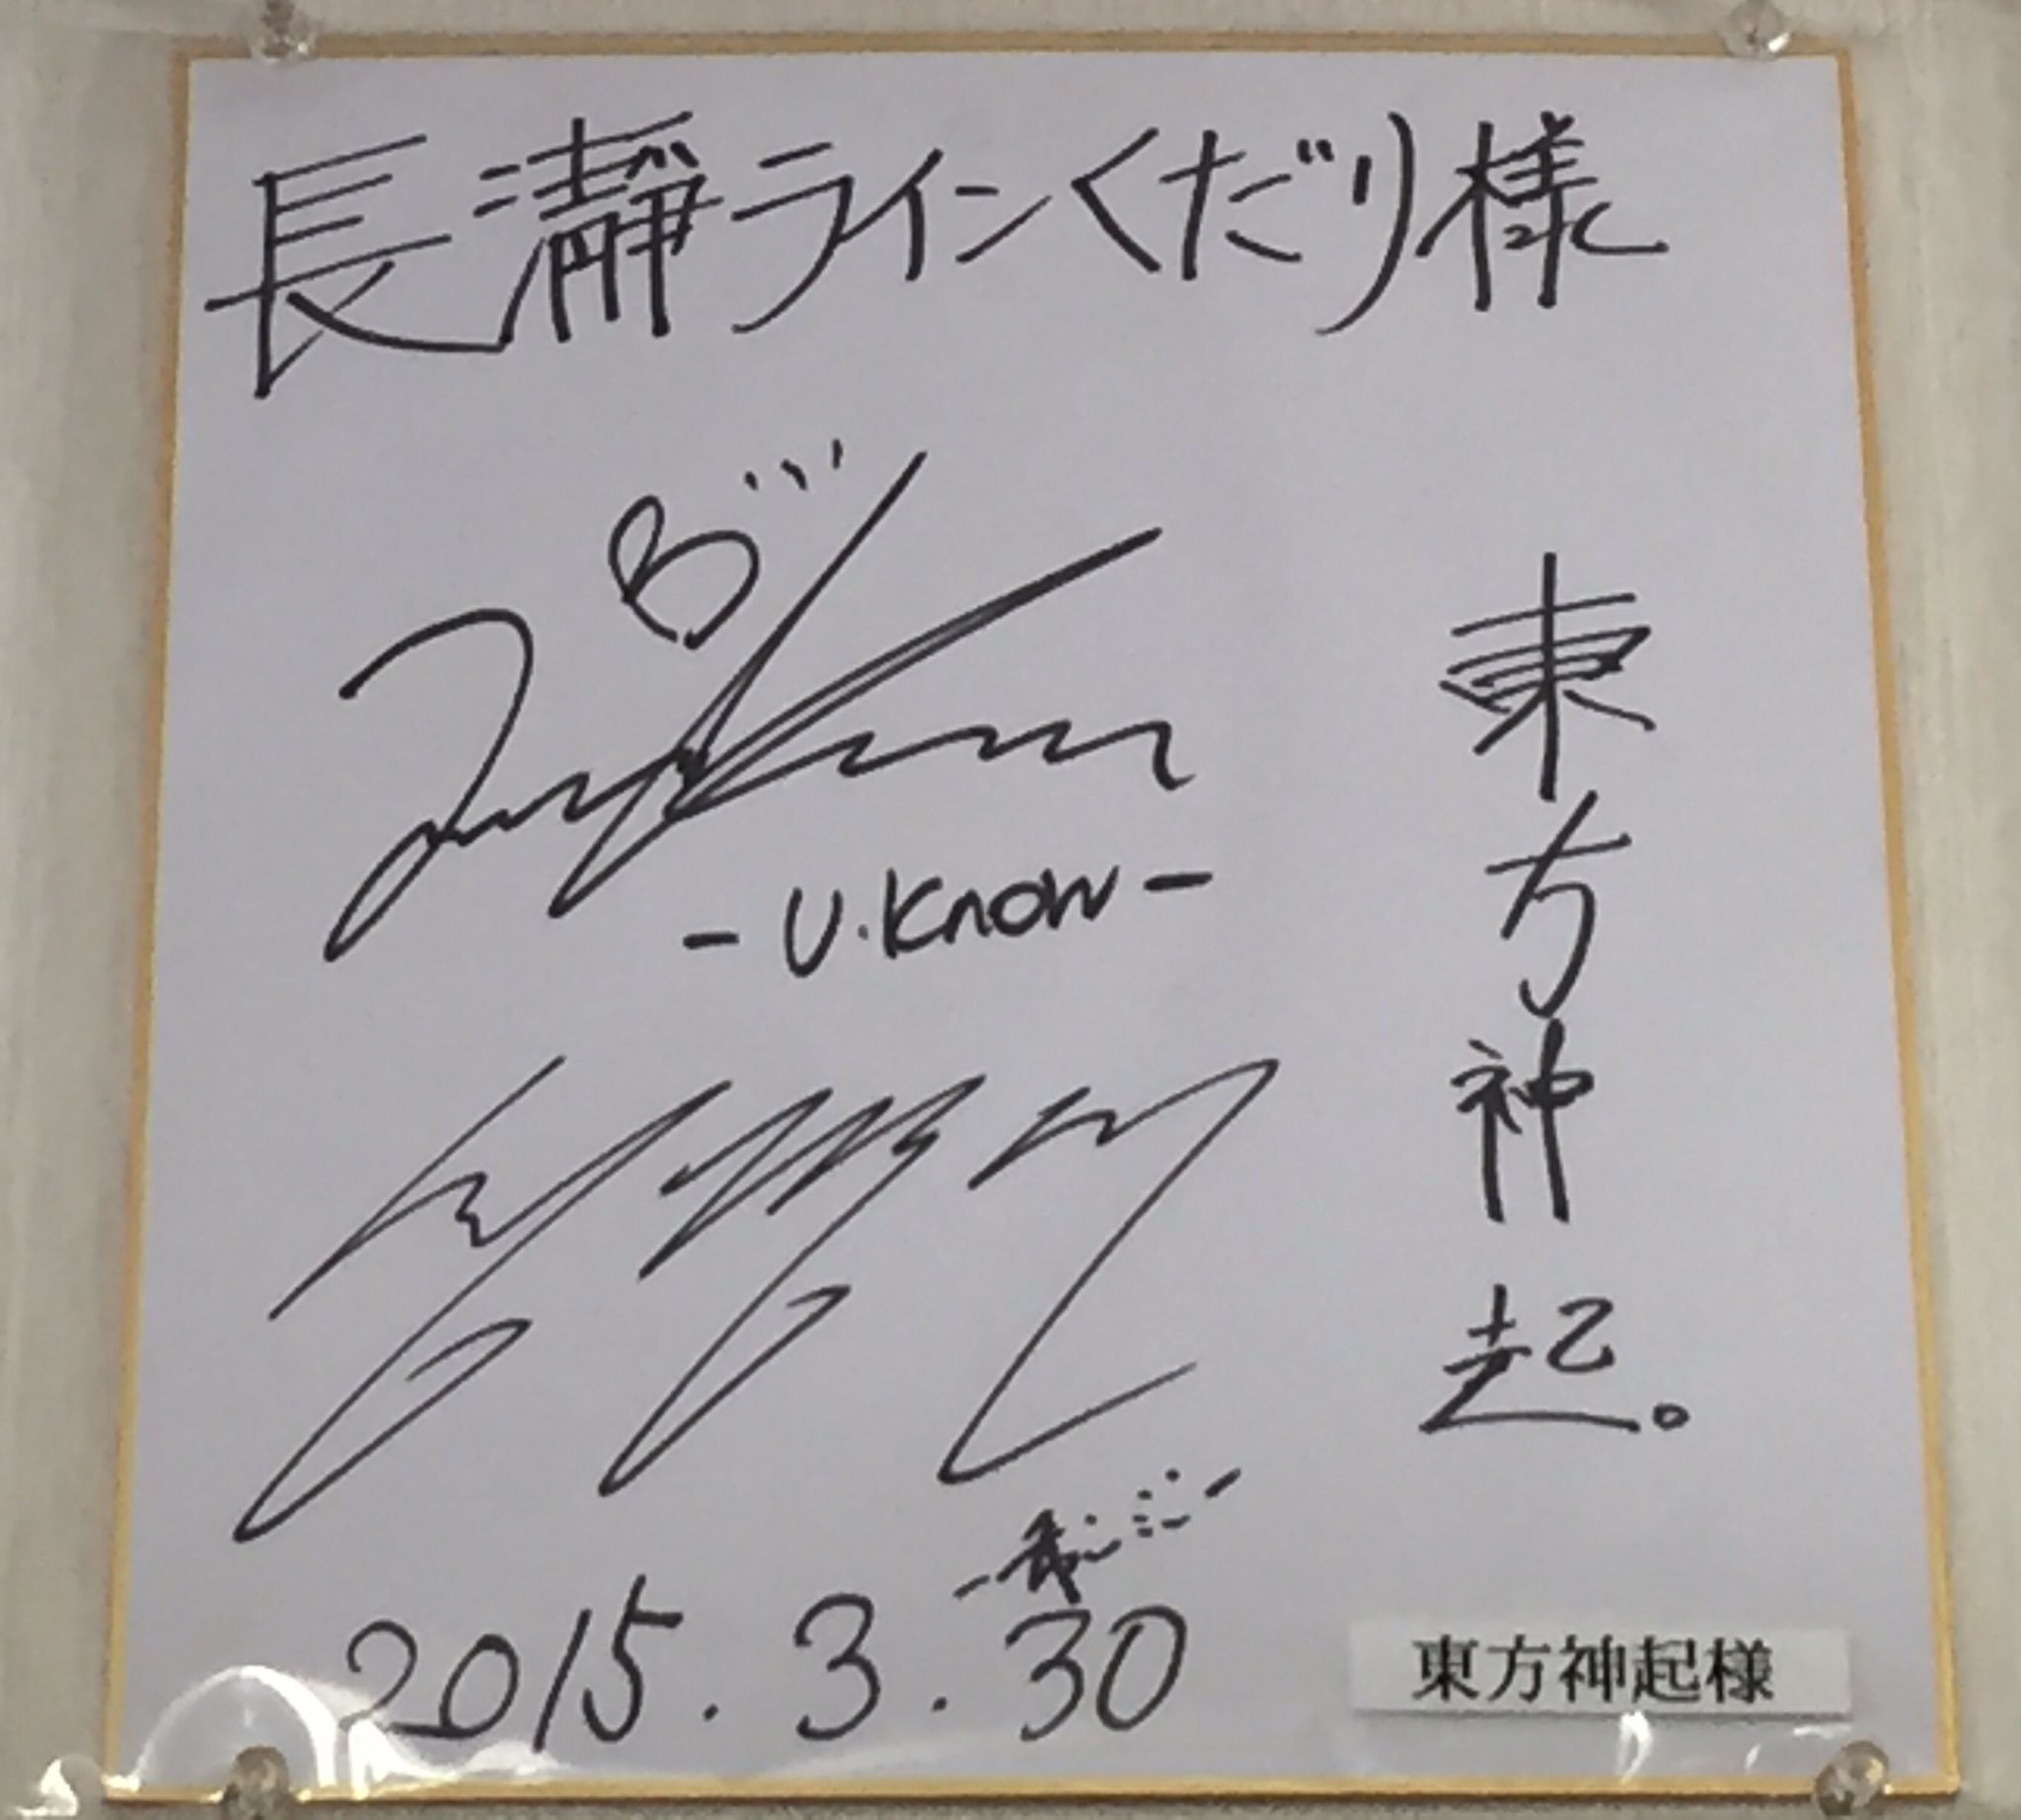 長瀞ラインくだり様
東方神起。
- U.Know -
2015.3.30
東方神起様